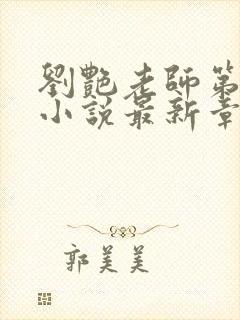 劉艷老師第
小說最新章
郭美美